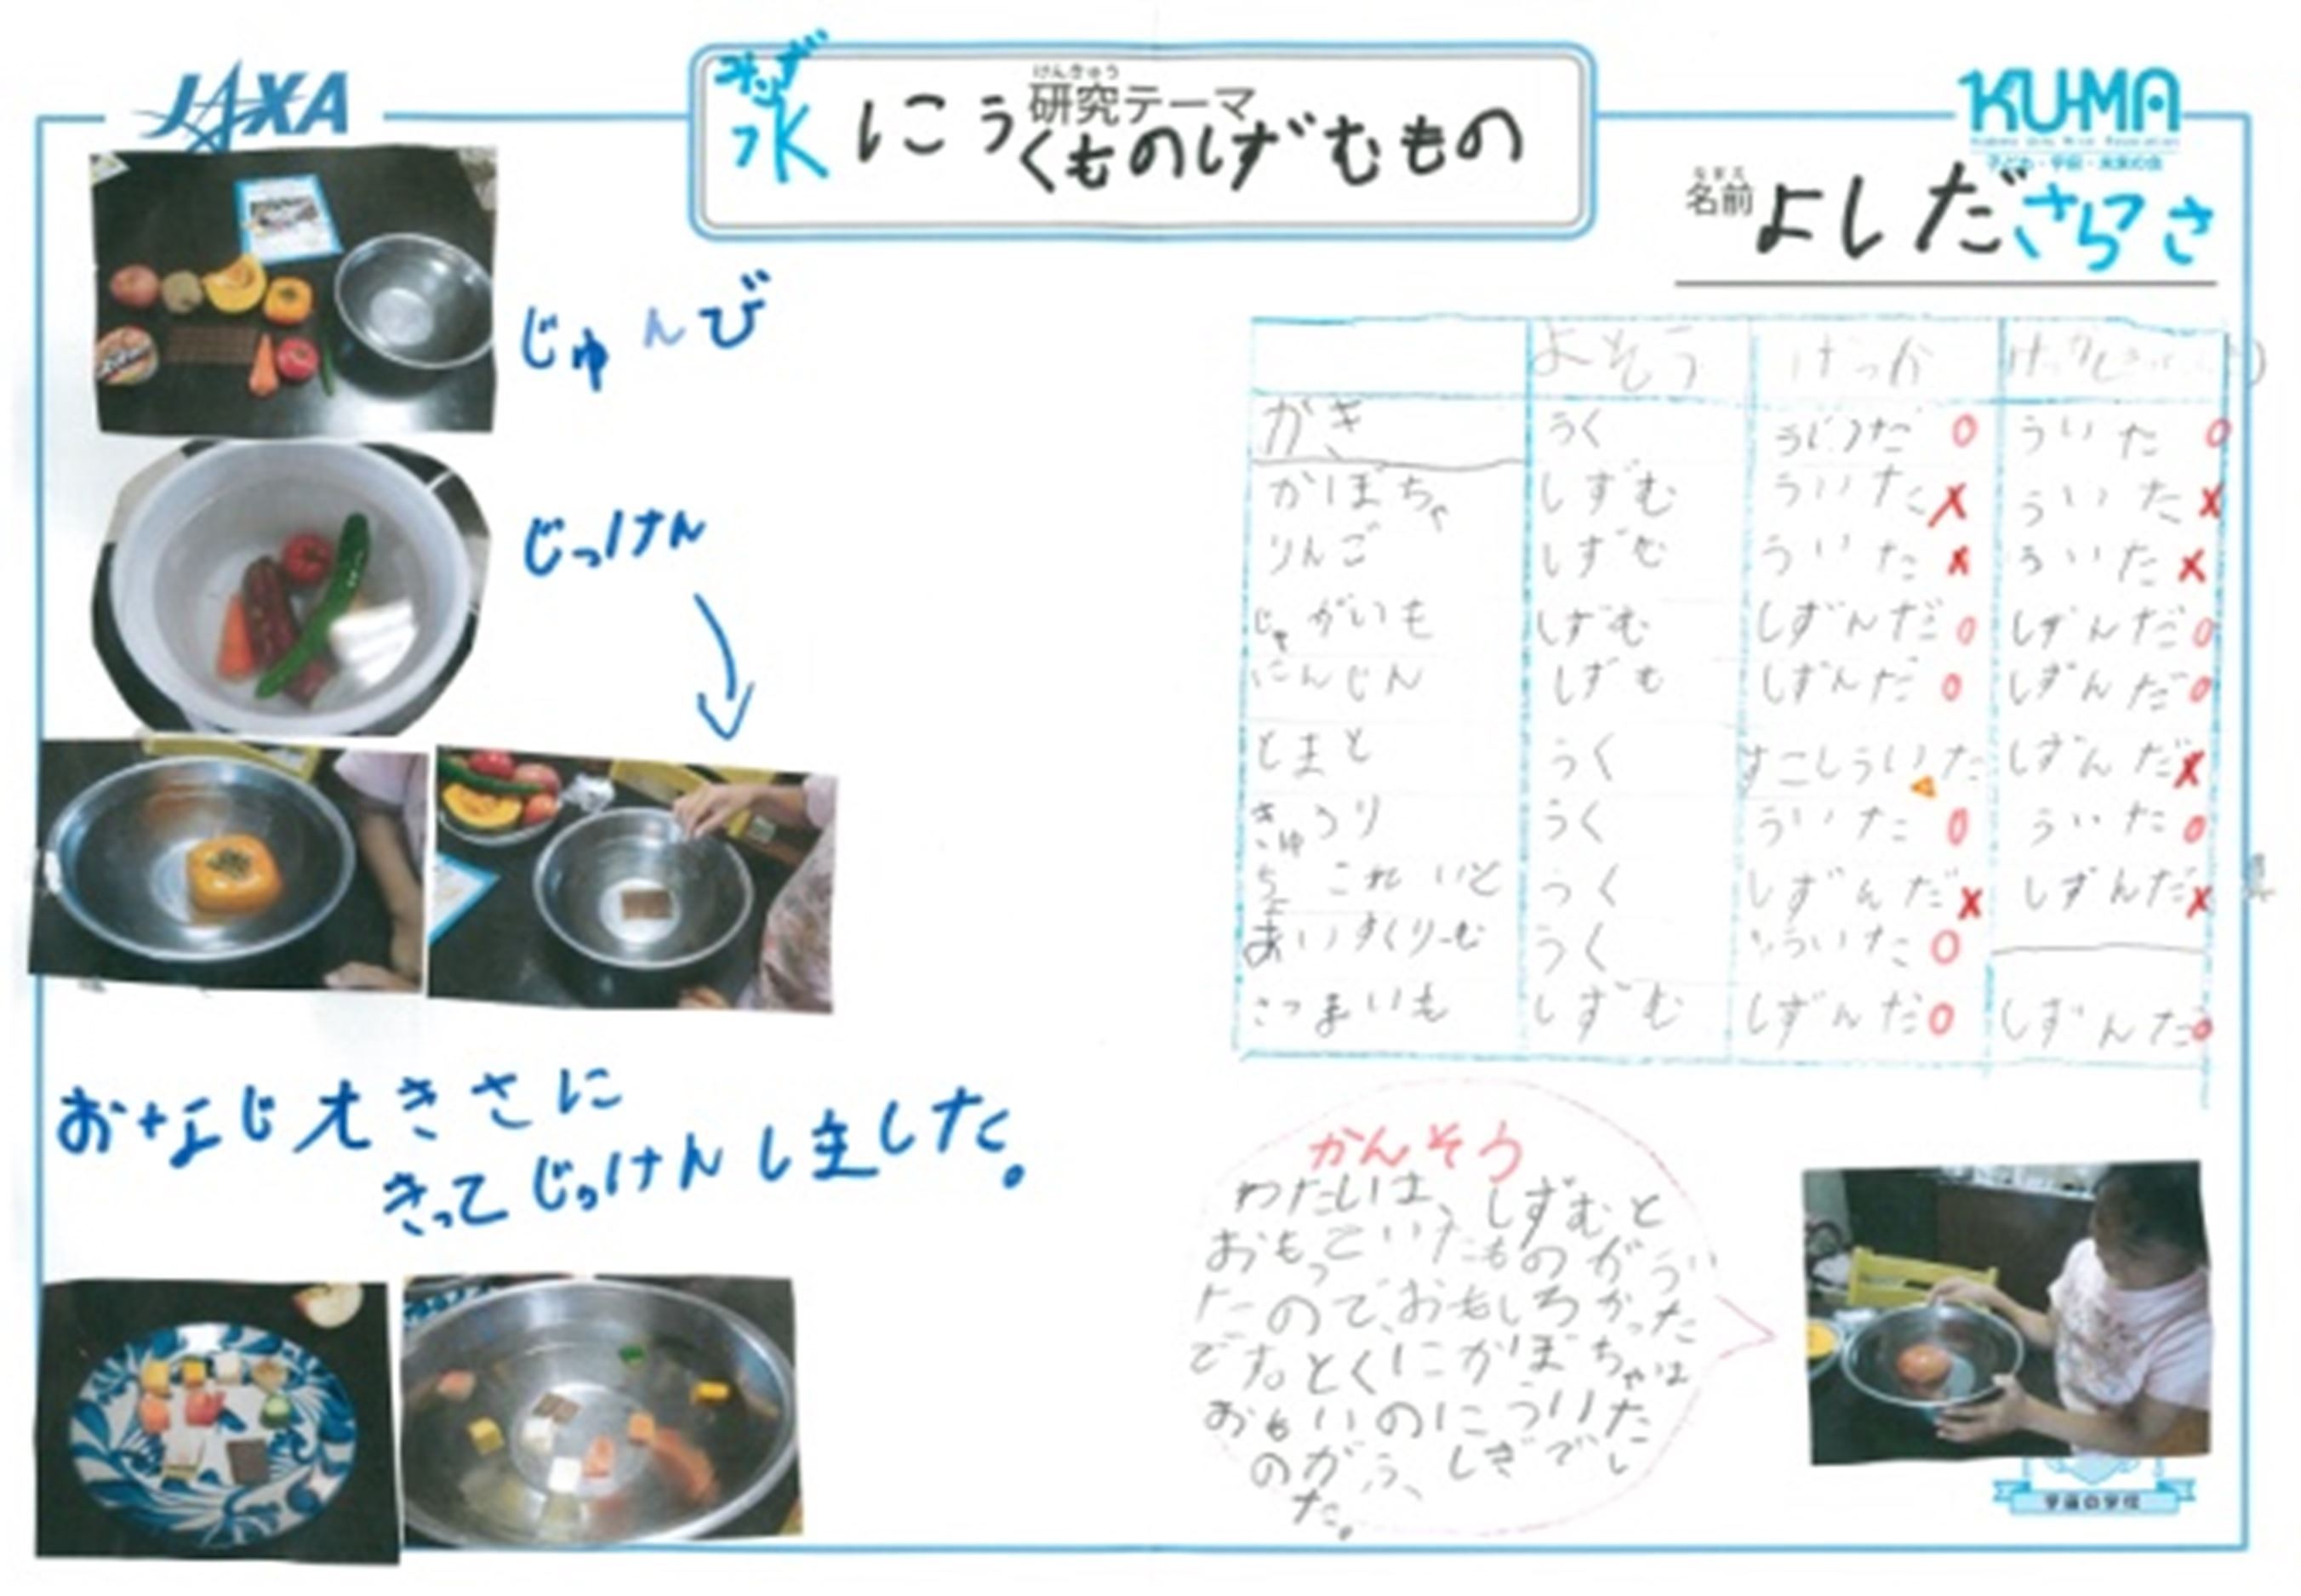 JAXA
KUMA
けんきゅう
研究テーマ
みず
水にうくものしずむもの
なまえ
名前 よしださらさ
じゅんび
じっけん
おなじ大きさに
きってじっけんしました。
よそう けっか
がき うく ういた ○ ういた ○
かぼちゃ しずむ ういた × ういた ×
りんご しずむ ういた × ういた ×
じゃがいも しずむ しずんだ ○ しずんだ ○
にんじん しずむ しずんだ ○ しずんだ ○
とまと うく すこしういた △ しずんだ ×
きゅうり うく ういた ○ ういた ○
ちょこれいと うく しずんだ × しずんだ ×
あいすくりーむ うく ういた ○
さつまいも しずむ しずんだ ○ しずんだ ○
かんそう
わたしは、しずむと
おもっていたものがうい
たので、おもしろかった
です。とくにかぼちゃは
おもいのにういた
のがふしぎでし
た。
宇宙の学校